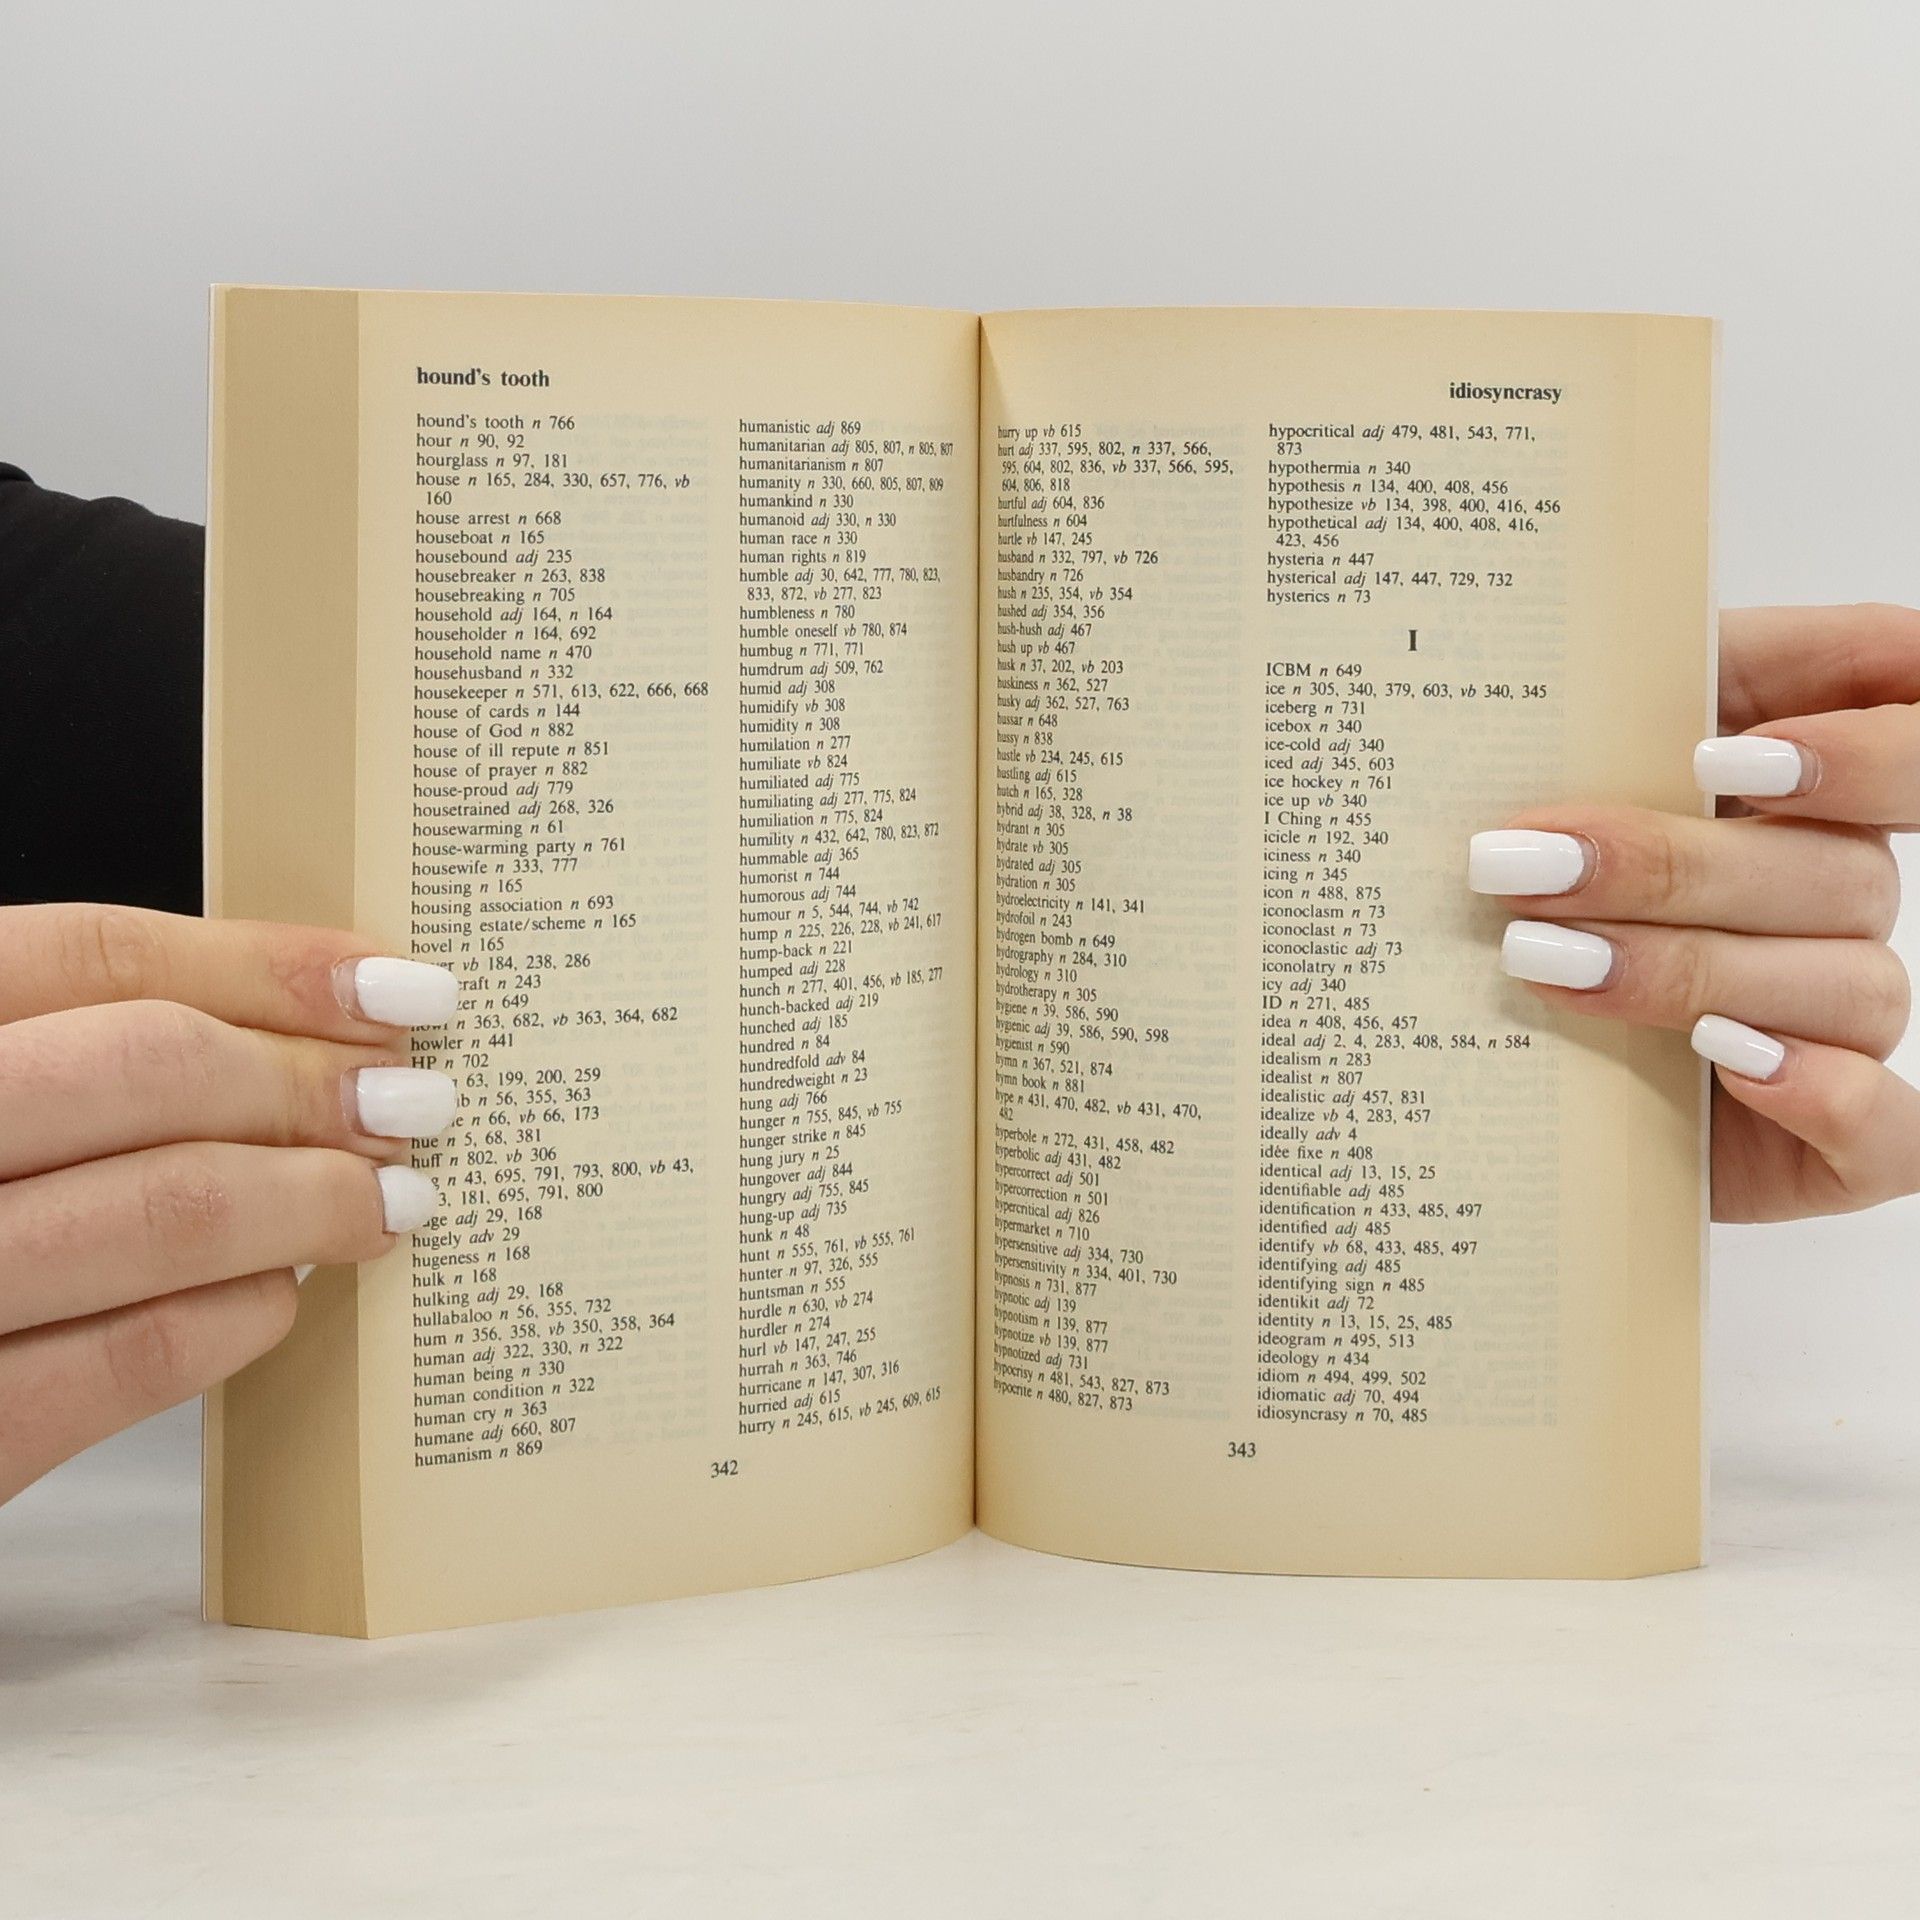 hound's tooth
hound's tooth n 766
hour n 90, 92
hourglass n 97, 181
house n 165, 284, 330, 657, 776, vb
160
house arrest n 668
houseboat n 165
housebound adj 235
housebreaker n 263, 838
housebreaking n 705
household adj 164, n 164
householder n 164, 692
household name n 470
househusband n 332
housekeeper n 571, 613, 622, 666, 668
house of cards n 144
house of God n 882
house of ill repute n 851
house of prayer n 882
house-proud adj 779
housetrained adj 268, 326
housewarming n 61
house-warming party n 761
housewife n 333, 777
housing n 165
housing association n 693
housing estate/scheme n 165
hovel n 165
vb 184, 238, 286
n 243
n 649
n 363, 682, vb 363, 364, 682
howler n 441
HP n 702
63, 199, 200, 259
n 56, 355, 363
n 66, vb 66, 173
hue n 5, 68, 381
huff n 802, vb 306
n 43, 695, 791, 793, 800, vb 43,
181, 695, 791, 800
adj 29, 168
hugely adv 29
hugeness n 168
hulk n 168
hulking adj 29, 168
hullabaloo n 56, 355, 732
hum n 356, 358, vb 350, 358, 364
human adj 322, 330, n 322
human being n 330
human condition n 322
human cry n 363
humane adj 660, 807
humanism n 869
humanistic adj 869
humanitarian adj 805, 807, n 805, 807
humanitarianism n 807
humanity n 330, 660, 805, 807, 809
humankind n 330
humanoid adj 330, n 330
human race n 330
human rights n 819
humble adj 30, 642, 777, 780, 823,
833, 872, vb 277, 823
humbleness n 780
humble oneself vb 780, 874
humbug n 771, 771
humdrum adj 509, 762
humid adj 308
humidify vb 308
humidity n 308
humilation n 277
humiliate vb 824
humiliated adj 775
humiliating adj 277, 775, 824
humiliation n 775, 824
humility n 432, 642, 780, 823, 872
hummable adj 365
humorist n 744
humorous adj 744
humour n 5, 544, 744, vb 742
hump n 225, 226, 228, vb 241, 617
hump-back n 221
humped adj 228
hunch n 277, 401, 456, vb 185, 277
hunch-backed adj 219
hunched adj 185
hundred n 84
hundredfold adv 84
hundredweight n 23
hung adj 766
hunger n 755, 845, vb 755
hunger strike n 845
hung jury n 25
hungover adj 844
hungry adj 755, 845
hung-up adj 735
hunk n 48
hunt n 555, 761, vb 555, 761
hunter n 97, 326, 555
huntsman n 555
hurdle n 630, vb 274
hurdler n 274
hurl vb 147, 247, 255
hurrah n 363, 746
hurricane n 147, 307, 316
hurried adj 615
hurry n 245, 615, vb 245, 609, 615
342
idiosyncrasy
hurry up vb 615
hurt adj 337, 595, 802, n 337, 566,
595, 604, 802, 836, vb 337, 566, 595,
604, 806, 818
hurtful adj 604, 836
hurtfulness n 604
hurtle vb 147, 245
husband n 332, 797, vb 726
husbandry n 726
hush n 235, 354, vb 354
hushed adj 354, 356
hush-hush adj 467
hush up vb 467
husk n 37, 202, vb 203
huskiness n 362, 527
husky adj 362, 527, 763
hussar n 648
hussy n 838
hustle vb 234, 245, 615
hustling adj 615
hutch n 165, 328
hybrid adj 38, 328, n 38
hydrant n 305
hydrate vb 305
hydrated adj 305
hydration n 305
hydroelectricity n 141, 341
hydrofoil n 243
hydrogen bomb n 649
hydrography n 284, 310
hydrology n 310
hydrotherapy n 305
hygiene n 39, 586, 590
hygienic adj 39, 586, 590, 598
hygienist n 590
hymn n 367, 521, 874
hymn book n 881
hype n 431, 470, 482, vb 431, 470,
482
hyperbole n 272, 431, 458, 482
hyperbolic adj 431, 482
hypercorrect adj 501
hypercorrection n 501
hypercritical adj 826
hypermarket n 710
hypersensitive adj 334, 730
hypersensitivity n 334, 401, 730
hypnosis n 731, 877
hypnotic adj 139
hypnotism n 139, 877
hypnotize vb 139, 877
hypnotized adj 731
hypocrisy n 481, 543, 827, 873
hypocrite n 480, 827, 873
hypocritical adj 479, 481, 543, 771,
873
hypothermia n 340
hypothesis n 134, 400, 408, 456
hypothesize vb 134, 398, 400, 416, 456
hypothetical adj 134, 400, 408, 416,
423, 456
hysteria n 447
hysterical adj 147, 447, 729, 732
hysterics n 73
I
ICBM n 649
ice n 305, 340, 379, 603, vb 340, 345
iceberg n 731
icebox n 340
ice-cold adj 340
iced adj 345, 603
ice hockey n 761
ice up vb 340
I Ching n 455
icicle n 192, 340
iciness n 340
icing n 345
icon n 488, 875
iconoclasm n 73
iconoclast n 73
iconoclastic adj 73
iconolatry n 875
icy adj 340
ID n 271, 485
idea n 408, 456, 457
ideal adj 2, 4, 283, 408, 584, n 584
idealism n 283
idealist n 807
idealistic adj 457, 831
idealize vb 4, 283, 457
ideally adv 4
idée fixe n 408
identical adj 13, 15, 25
identifiable adj 485
identification n 433, 485, 497
identified adj 485
identify vb 68, 433, 485, 497
identifying adj 485
identifying sign n 485
identikit adj 72
identity n 13, 15, 25, 485
ideogram n 495, 513
ideology n 434
idiom n 494, 499, 502
idiomatic adj 70, 494
idiosyncrasy n 70, 485
343